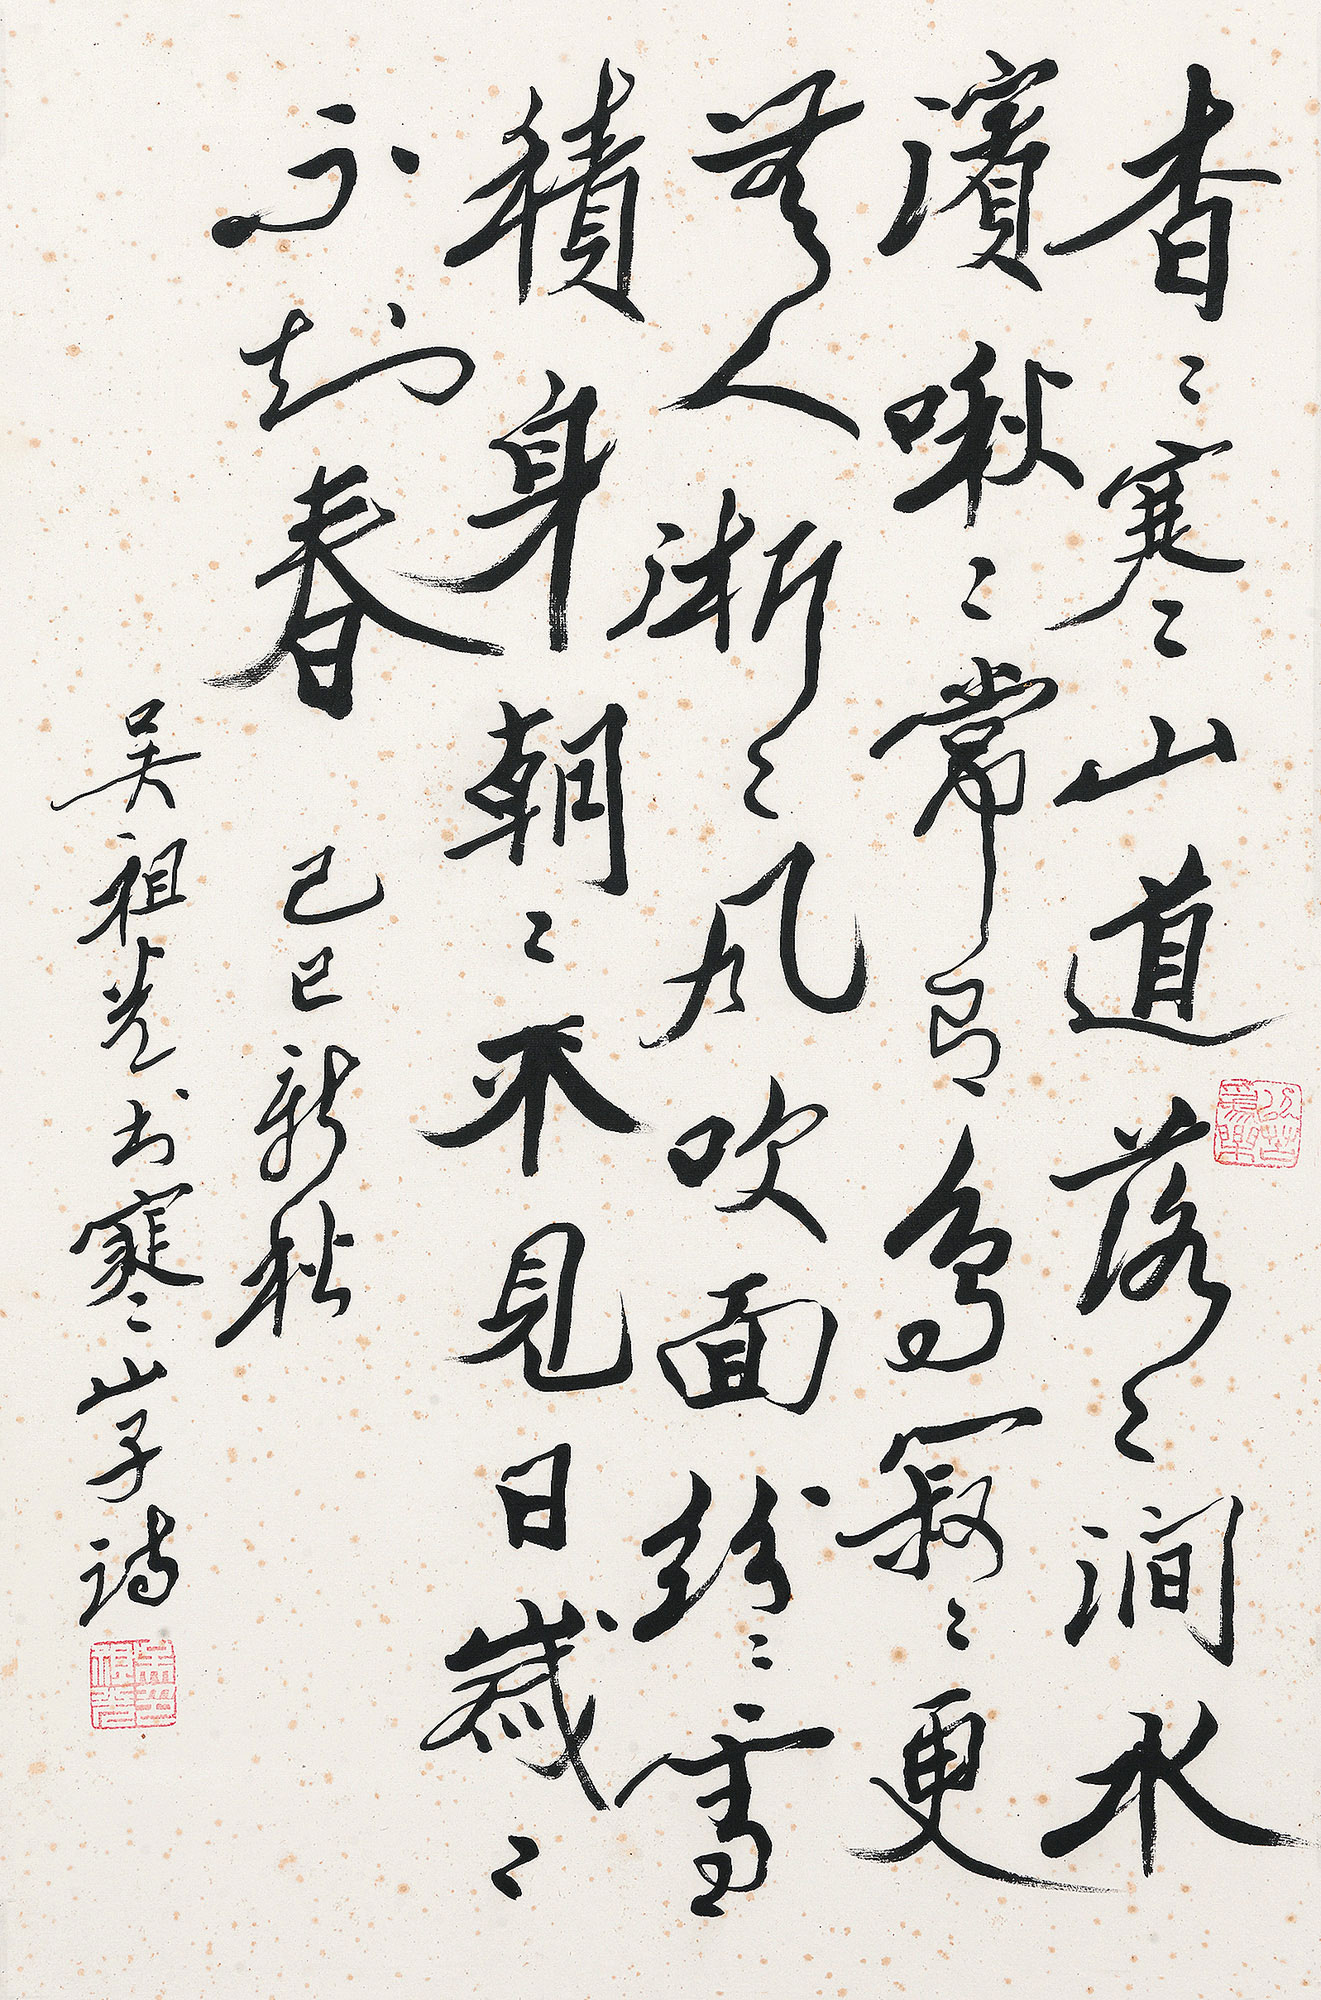 杳〻寒山道落〻澗水
濱啾〻常有鳥寂〻更
無人淅〻風吹面紛〻雪
積身朝〻不見日歲〻
不知春
己巳新秋
吴祖光书寒山子诗
以苦為樂